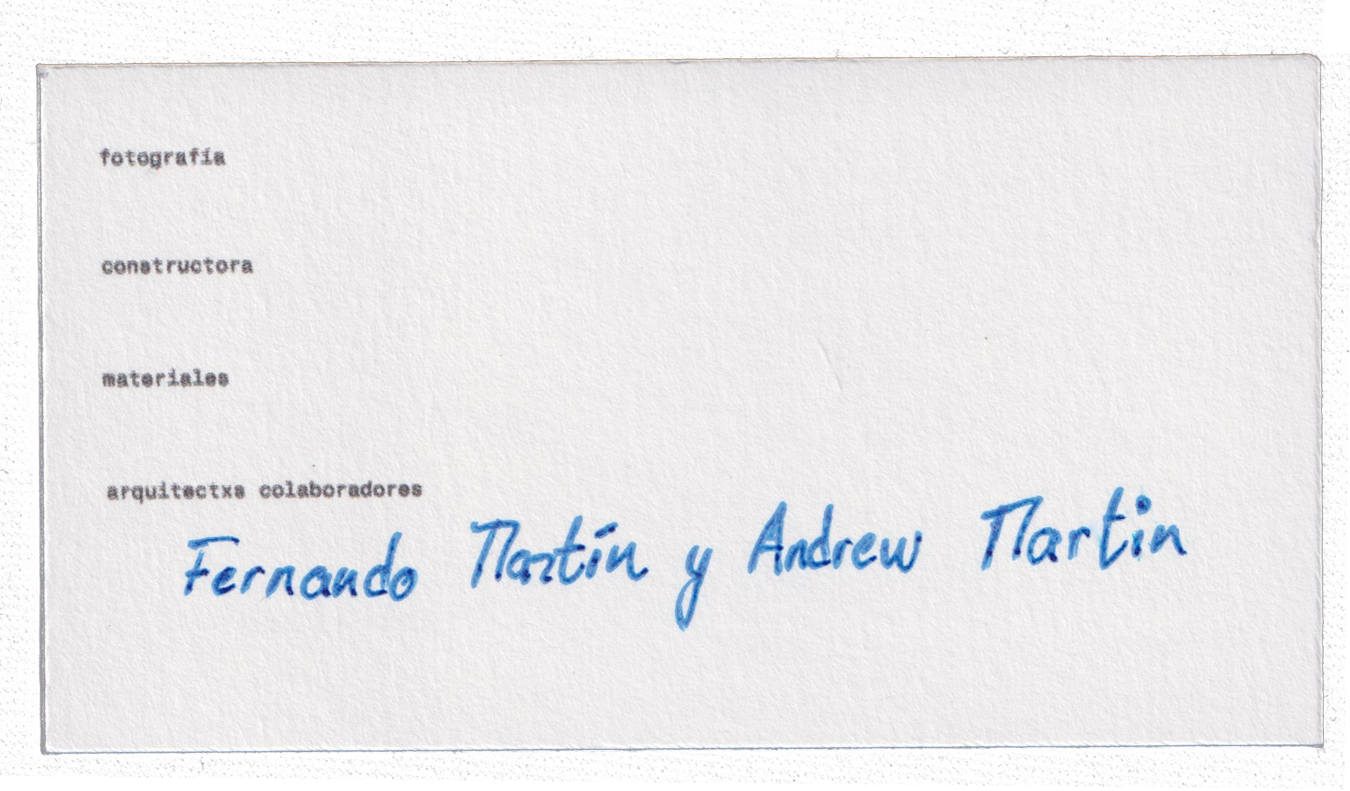 fotografía
constructora
materiales
arquitectxs colaboradores
Fernando Martín y Andrew Martin